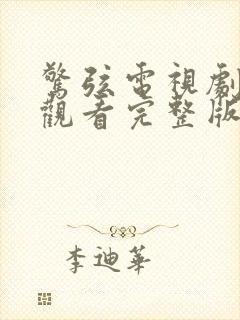 驚弦電視劇
觀看完整版
李迪華